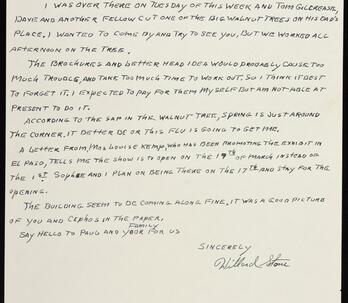 I WAS OVER THERE ON TUESDAY OF THIS WEEK AND TOM GILCREASE,
DAVE AND ANOTHER FELLOW CUT ONE OF THE BIG WALNUT TREES ON HIS DAD'S
PLACE, I WANTED TO COME BY AND TRY TO SEE YOU, BUT WE WORKED ALL
AFTERNOON ON THE TREE.
THE BROCHURES AND LETTER HEAD IDEA WOULD PROBABLY CAUSE TOO
MUCH TROUBLE, AND TAKE TOO MUCH TIME TO WORK OUT. SO I THINK IT BEST
TO FORGET IT. I EXPECTED TO PAY FOR THEM MYSELF BUT AM NOT ABLE AT
PRESENT TO DO IT.
ACCORDING TO THE SAP IN THE WALNUT TREE, SPRING IS JUST AROUND
THE CORNER. IT BETTER BE OR THIS FLU IS GOING TO GET ME.
A LETTER FROM, MRS LOUISE KEMP, WHO HAS BEEN PROMOTING THE EXHIBIT IN
EL PASO, TELLS ME THE SHOW IS TO OPEN ON THE 19TH OF MARCH INSTEAD OF
THE 1ST SO, AND I PLAN ON BEING THERE ON THE 17TH AND STAY FOR THE
OPENING.
THE BUILDING SEEM TO BE COMING ALONG FINE, IT WAS A GOOD PICTURE
OF YOU AND CEPHOS IN THE PAPER,
SAY HELLO TO PAUL AND YOUR FAMILY FOR US
SINCERELY
Willard Stone